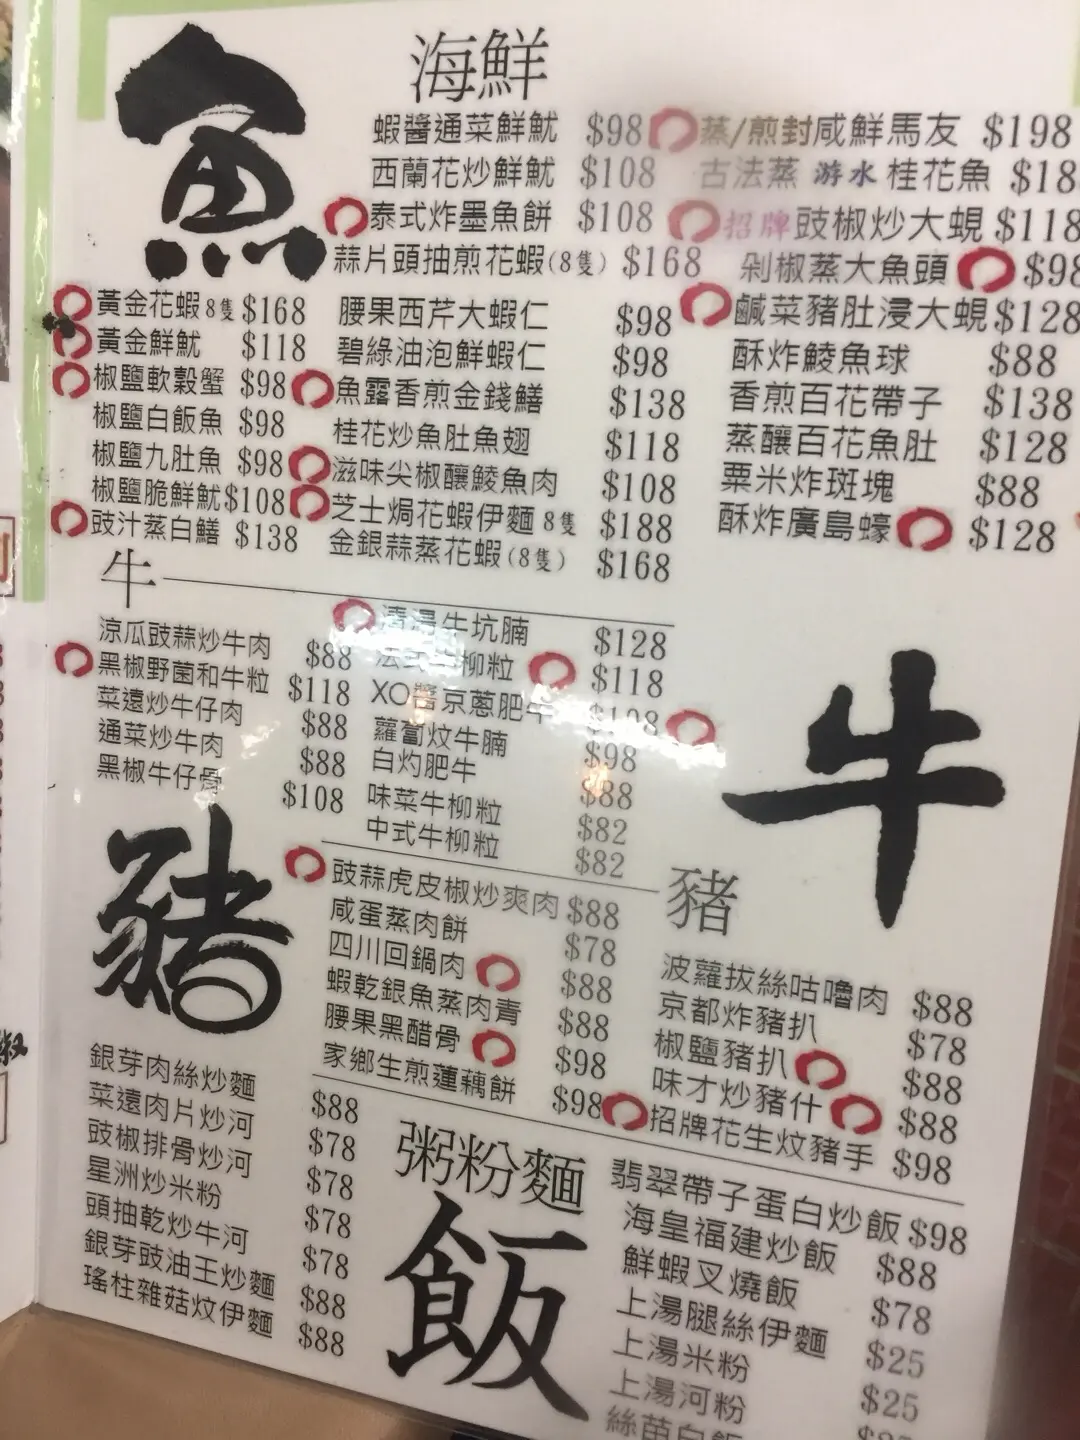 魚
海鮮
蝦醬通菜鮮魷 $98
西蘭花炒鮮魷 $108
泰式炸墨魚餅 $108
蒜片頭抽煎花蝦(8隻) $168
蒸/煎封咸鮮馬友 $198
古法蒸 游水 桂花魚 $18
招牌豉椒炒大蜆 $118
剁椒蒸大魚頭 $98
鹹菜豬肚浸大蜆 $128
酥炸鯪魚球 $88
香煎百花帶子 $138
蒸釀百花魚肚 $128
粟米炸斑塊 $88
酥炸廣島蠔 $128
黃金花蝦 8隻 $168
黃金鮮魷 $118
椒鹽軟殼蟹 $98
椒鹽白飯魚 $98
椒鹽九肚魚 $98
椒鹽脆鮮魷 $108
豉汁蒸白鱔 $138
腰果西芹大蝦仁 $98
碧綠油泡鮮蝦仁 $98
魚露香煎金錢鱔 $138
桂花炒魚肚魚翅 $118
滋味尖椒釀鯪魚肉 $108
芝士焗花蝦伊麵 8隻 $188
金銀蒜蒸花蝦(8隻) $168
牛
涼瓜豉蒜炒牛肉 $88
黑椒野菌和牛粒 $118
菜遠炒牛仔肉 $88
通菜炒牛肉 $88
黑椒牛仔骨 $108
清湯牛坑腩 $128
法式牛柳粒 $118
XO醬京蔥肥牛 $108
蘿蔔炆牛腩 $98
白灼肥牛 $88
味菜牛柳粒 $82
中式牛柳粒 $82
牛
豬
豬
豉蒜虎皮椒炒爽肉 $88
咸蛋蒸肉餅 $78
四川回鍋肉 $88
蝦乾銀魚蒸肉青 $88
腰果黑醋骨 $98
家鄉生煎蓮藕餅 $98
波蘿拔絲咕嚕肉 $88
京都炸豬扒 $78
椒鹽豬扒 $88
味才炒豬什 $88
招牌花生炆豬手 $98
粥粉麵
飯
銀芽肉絲炒麵 $88
菜遠肉片炒河 $78
豉椒排骨炒河 $78
星洲炒米粉 $78
頭抽乾炒牛河 $78
銀芽豉油王炒麵 $88
瑤柱雜菇炆伊麵 $88
翡翠帶子蛋白炒飯 $98
海皇福建炒飯 $88
鮮蝦叉燒飯 $78
上湯腿絲伊麵 $25
上湯米粉 $25
上湯河粉
絲苗白飯
椒